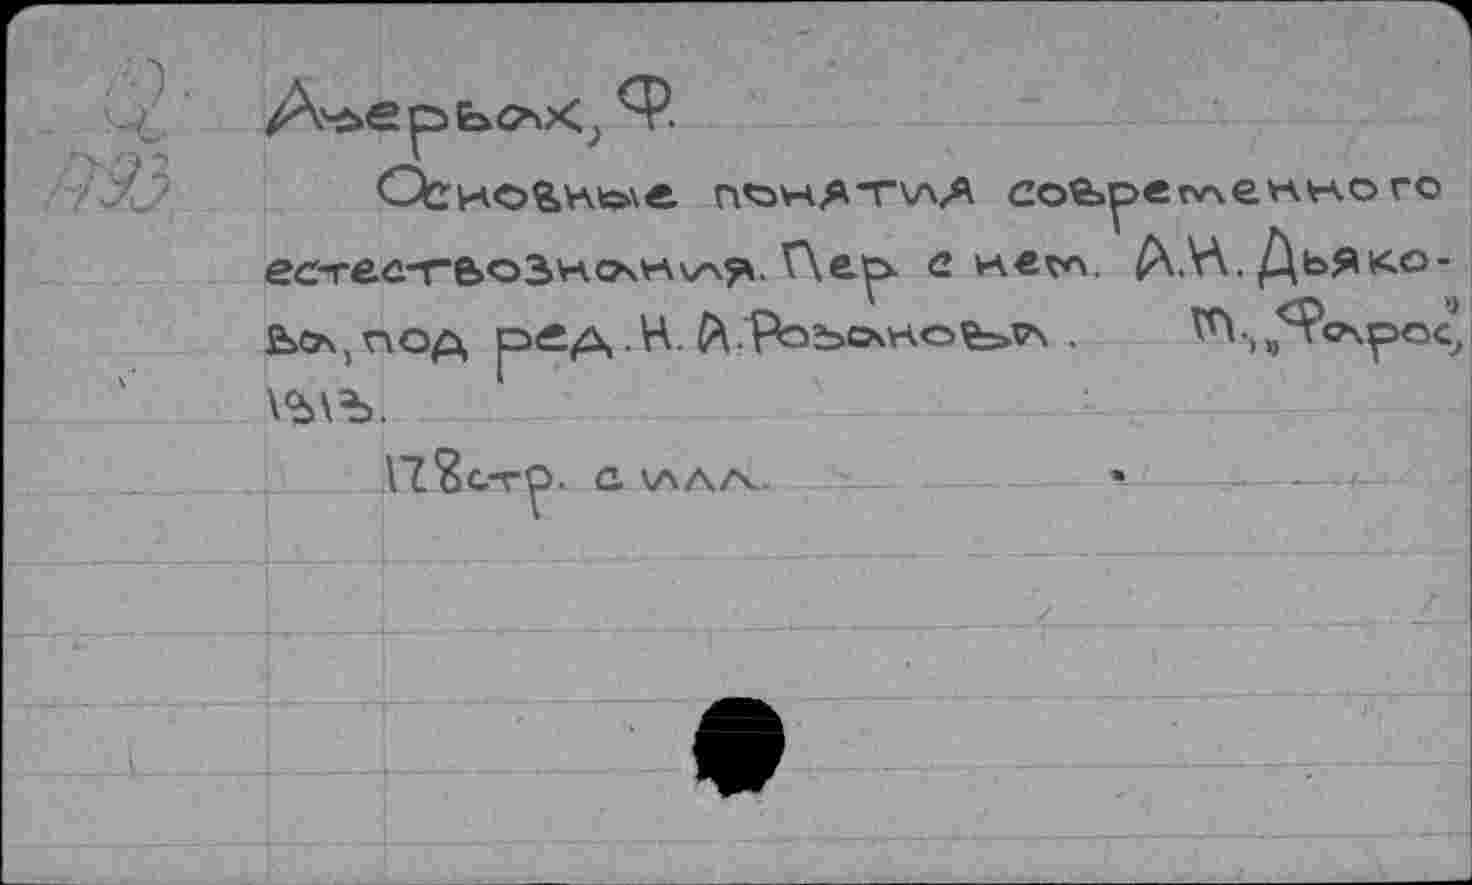 А93
Ауербах, Ф.
Основные понятия современного
естествознания. Пер. с нем. А.И. Дьяко-
ва, под ред. Н. А. Розанова. М., „Фарос”,
1913.
178 стр. с илл.